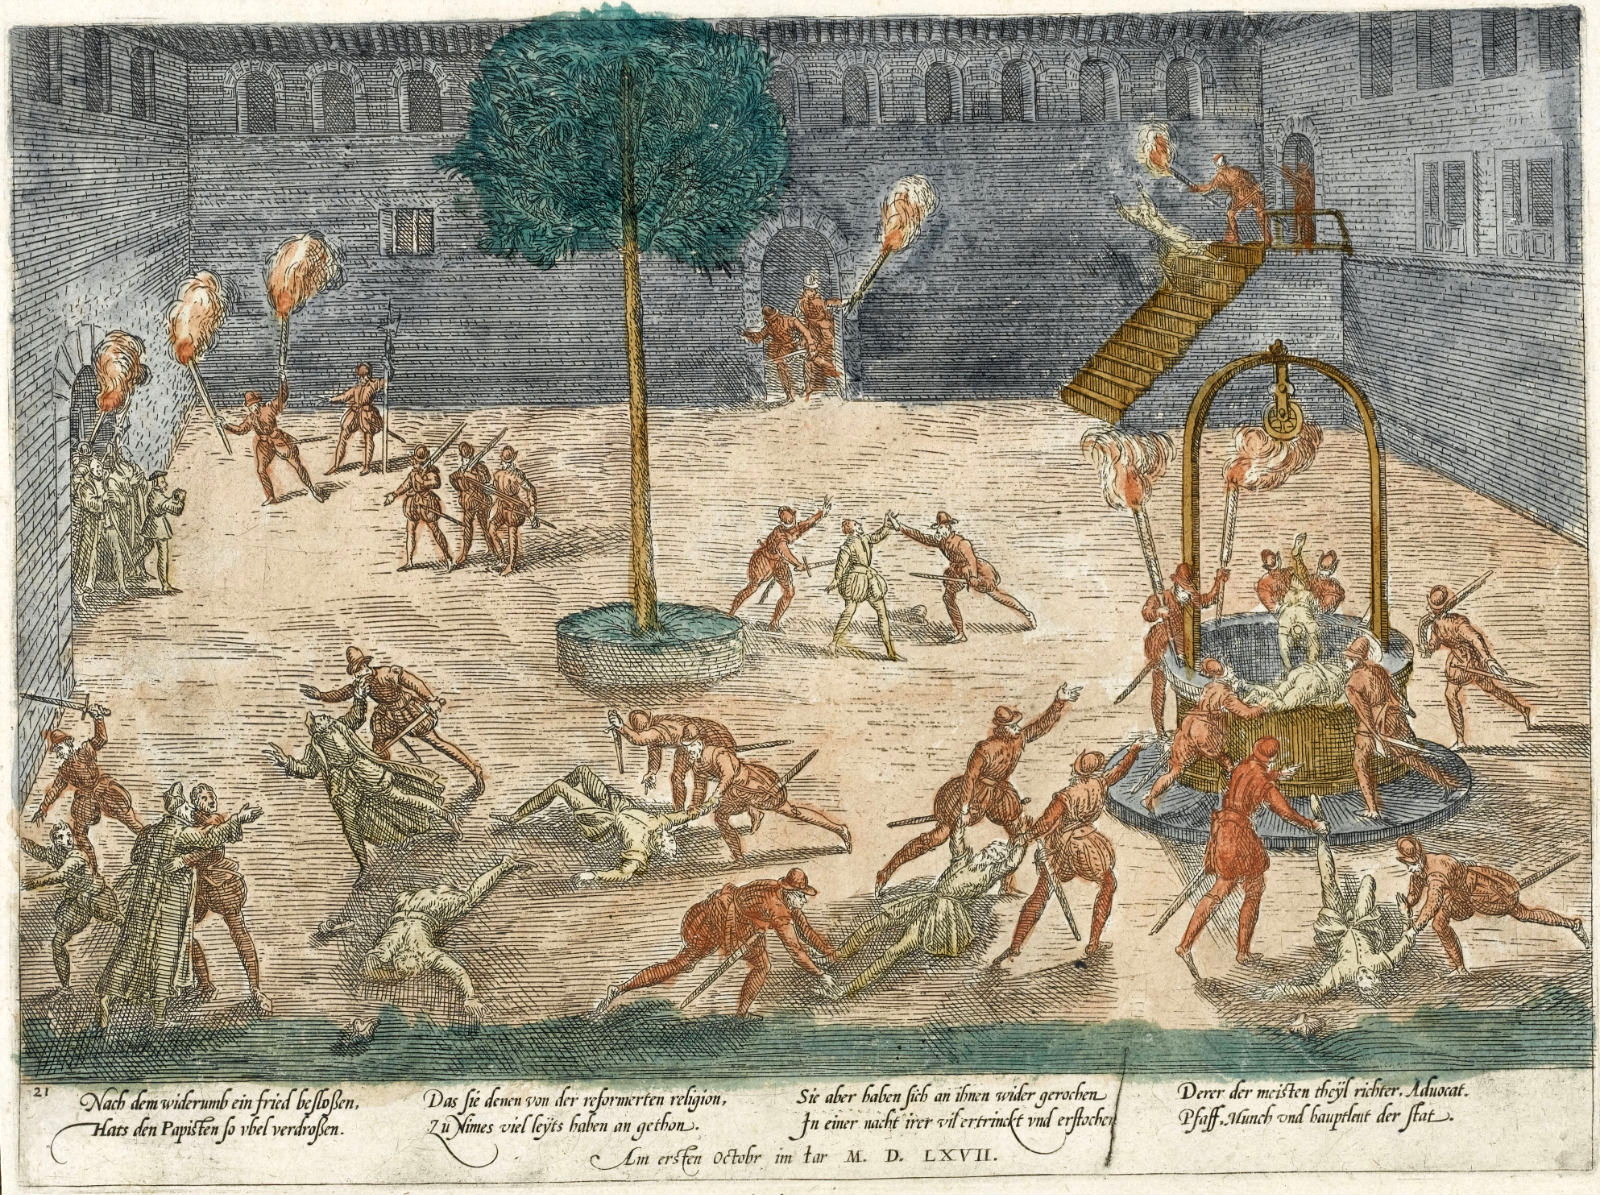 21
Nach dem widerumb ein fried besloßen,
Hats den Papisten so vbel verdroßen.
Das sie denen von der reformerten religion,
Zů Nimes viel leÿts haben an gethon.
Sie aber haben sich an ihnen wider gerochen
In einer nacht irer vil ertrinckt vnd erstochen
Derer der meisten theÿl richter, Aduocat.
Pfaff, Munch vnd hauptleut der stat.
Am ersten Octobr im Iar M. D. LXVII.